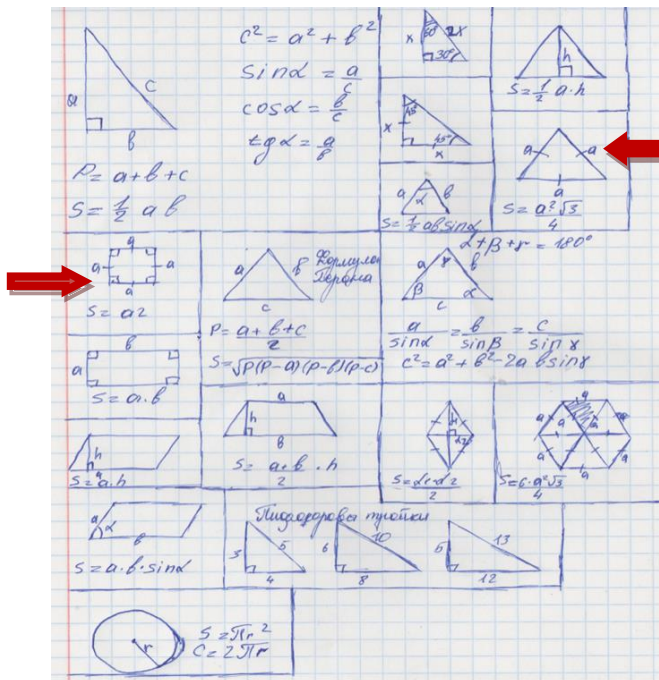 c² = a² + b²
sinα = a/c
cosα = b/c
tgα = a/b
a
c
b
P = a+b+c
S = 1/2 ab
x
60°
2x
30°
h
S = 1/2 a·h
x
45°
45°
x
a
a
a
S = a²√3/4
a
α
b
S = 1/2 ab sinα
a
a
a
a
S = a2
a
b
c
Формула
Герона
P = a+b+c/2
S = √P(P-a)(P-b)(P-c)
α+β+γ = 180°
a
γ
b
β
α
c
a/sinα = b/sinβ = c/sinγ
c² = a² + b² - 2a b sinγ
b
a
S = a·b
h
a
S = a·h
a
h
b
S = a+b/2 · h
S = d1·d2/2
a
a
a
a
a
a
S = 6·a²√3/4
a
α
b
S = a·b·sinα
Пифагоровы тройки
3
5
4
6
10
8
5
13
12
r
S = πr²
C = 2πr